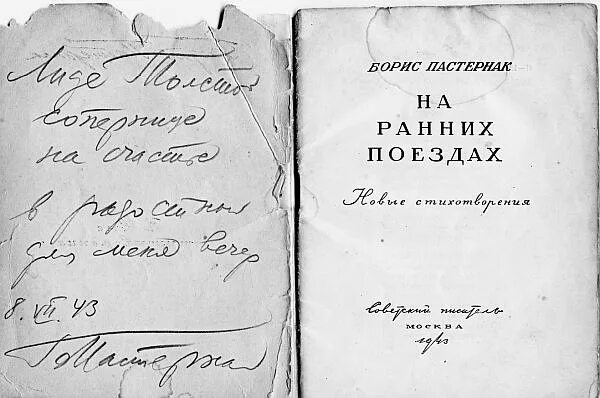 Лиде Толстой
сопернице
на счастье
в радостный
для меня вечер
8. VII. 43
Б Пастернак
БОРИС ПАСТЕРНАК
НА
РАННИХ
ПОЕЗДАХ
Новые стихотворения
Советский писатель
МОСКВА
1943